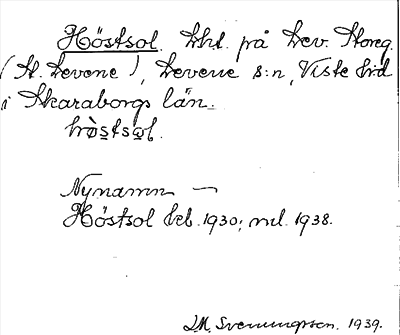 Höstsol. Lht. på Lev. Storeg.
(St. Levene), Levene s:n, Viste hd
i Skaraborgs län.
hö̀stsol.
Nynamn —
Höstsol beb. 1930; ml. 1938.
L.M. Svenungsson. 1939.